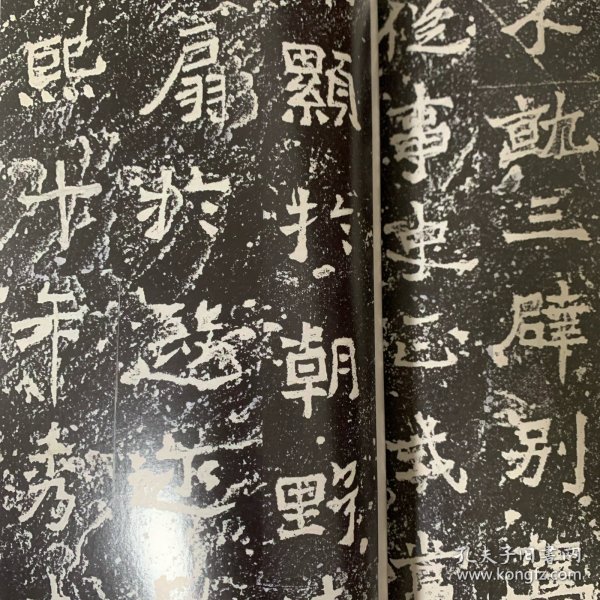 不就三辟别駕
從事史正式當
顯於朝野
扇於遐迩
熙十年秀
孔夫子旧书网
www.kongfz.com